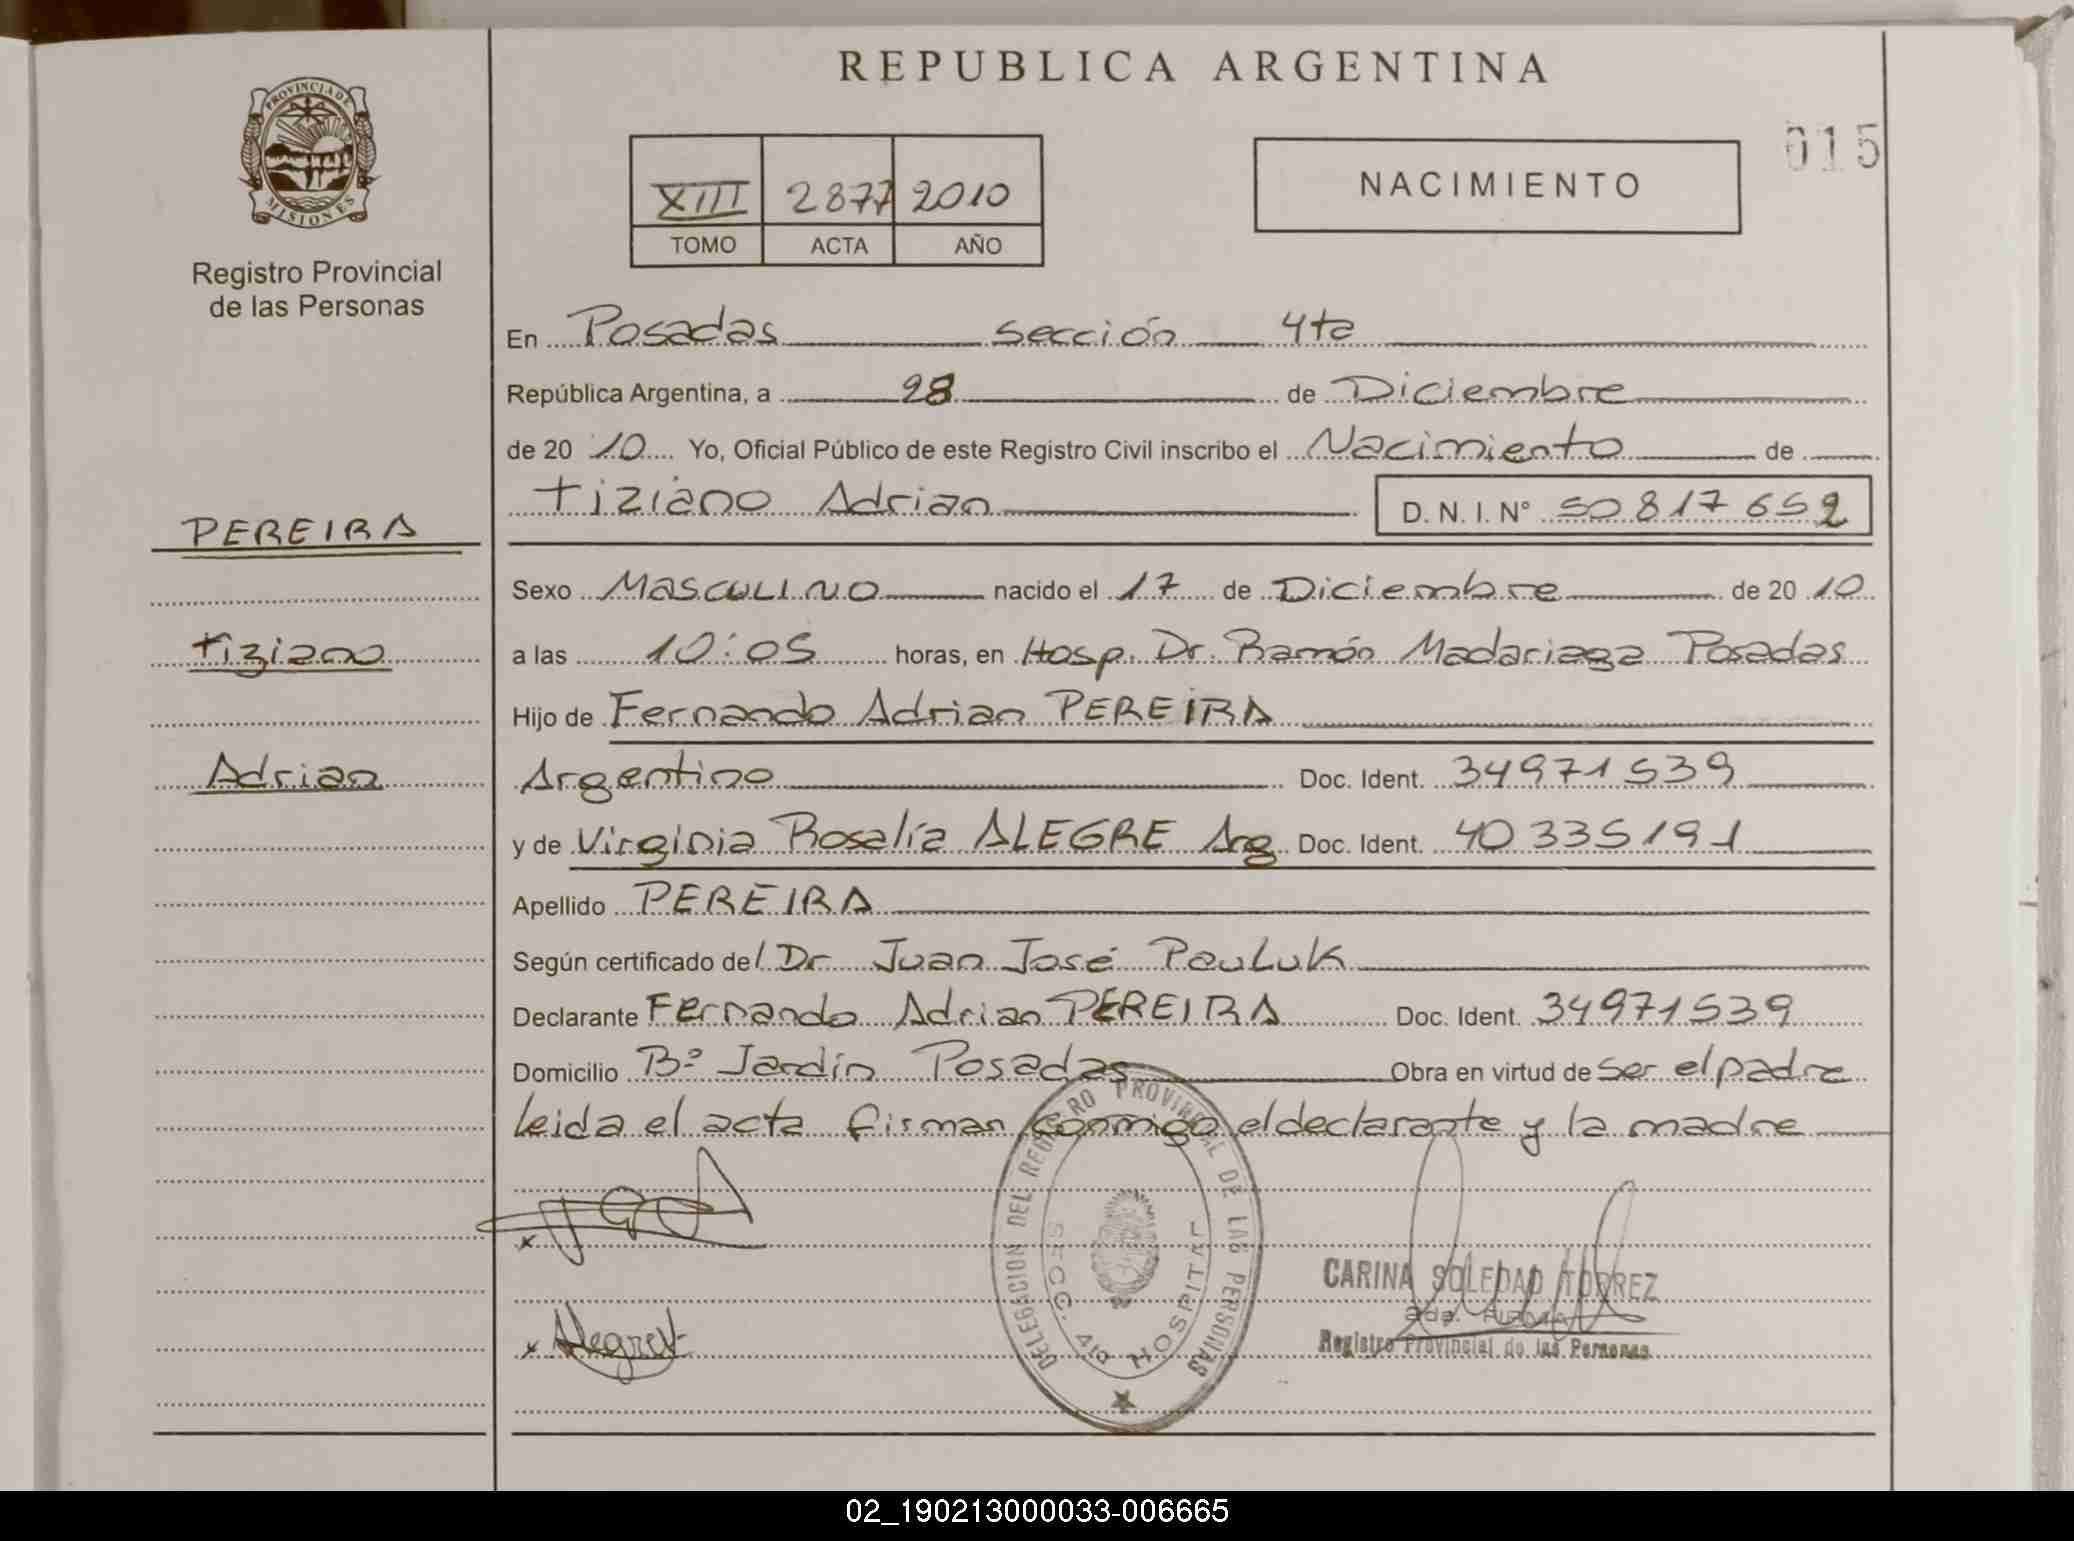 REPUBLICA ARGENTINA
PROVINCIA DE MISIONES
Registro Provincial
de las Personas
XIII 2877 2010
TOMO ACTA AÑO
NACIMIENTO
015
En Posadas sección 4ta
República Argentina, a 28 de Diciembre
de 20 10 Yo, Oficial Público de este Registro Civil inscribo el Nacimiento de
tiziano Adrian D. N. I. N° 50 817 652
PEREIRA
tiziano
Adrian
Sexo Masculino nacido el 17 de Diciembre de 20 10
a las 10:05 horas, en Hosp. Dr. Ramón Madariaga Posadas
Hijo de Fernando Adrian PEREIRA
Argentino Doc. Ident. 34971539
y de Virginia Rosalía ALEGRE Arg Doc. Ident. 40335191
Apellido PEREIRA
Según certificado del Dr Juan José Pauluk
Declarante Fernando Adrian PEREIRA Doc. Ident. 34971539
Domicilio B° Jardín Posadas Obra en virtud de ser el padre
leida el acta firman conmigo el declarante y la madre
DELEGACION DEL REGISTRO PROVINCIAL DE LAS PERSONAS
SECC. 4ta HOSPITAL
CARINA SOLEDAD TORREZ
Registro Provincial de las Personas
02_190213000033-006665